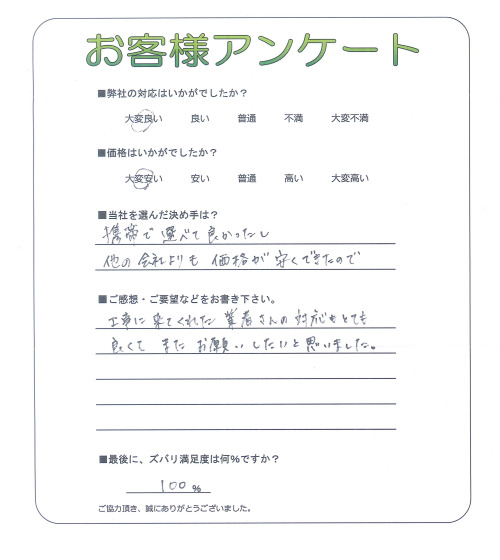 お客様アンケート
■弊社の対応はいかがでしたか？
大変良い 良い 普通 不満 大変不満
■価格はいかがでしたか？
大変安い 安い 普通 高い 大変高い
■当社を選んだ決め手は？
携帯で選べて良かったし
他の会社よりも 価格が安くできたので
■ご感想・ご要望などをお書き下さい。
工事に来てくれた業者さんの対応もとても
良くて またお願いしたいと思いました。
■最後に、ズバリ満足度は何%ですか？
100 %
ご協力頂き、誠にありがとうございました。